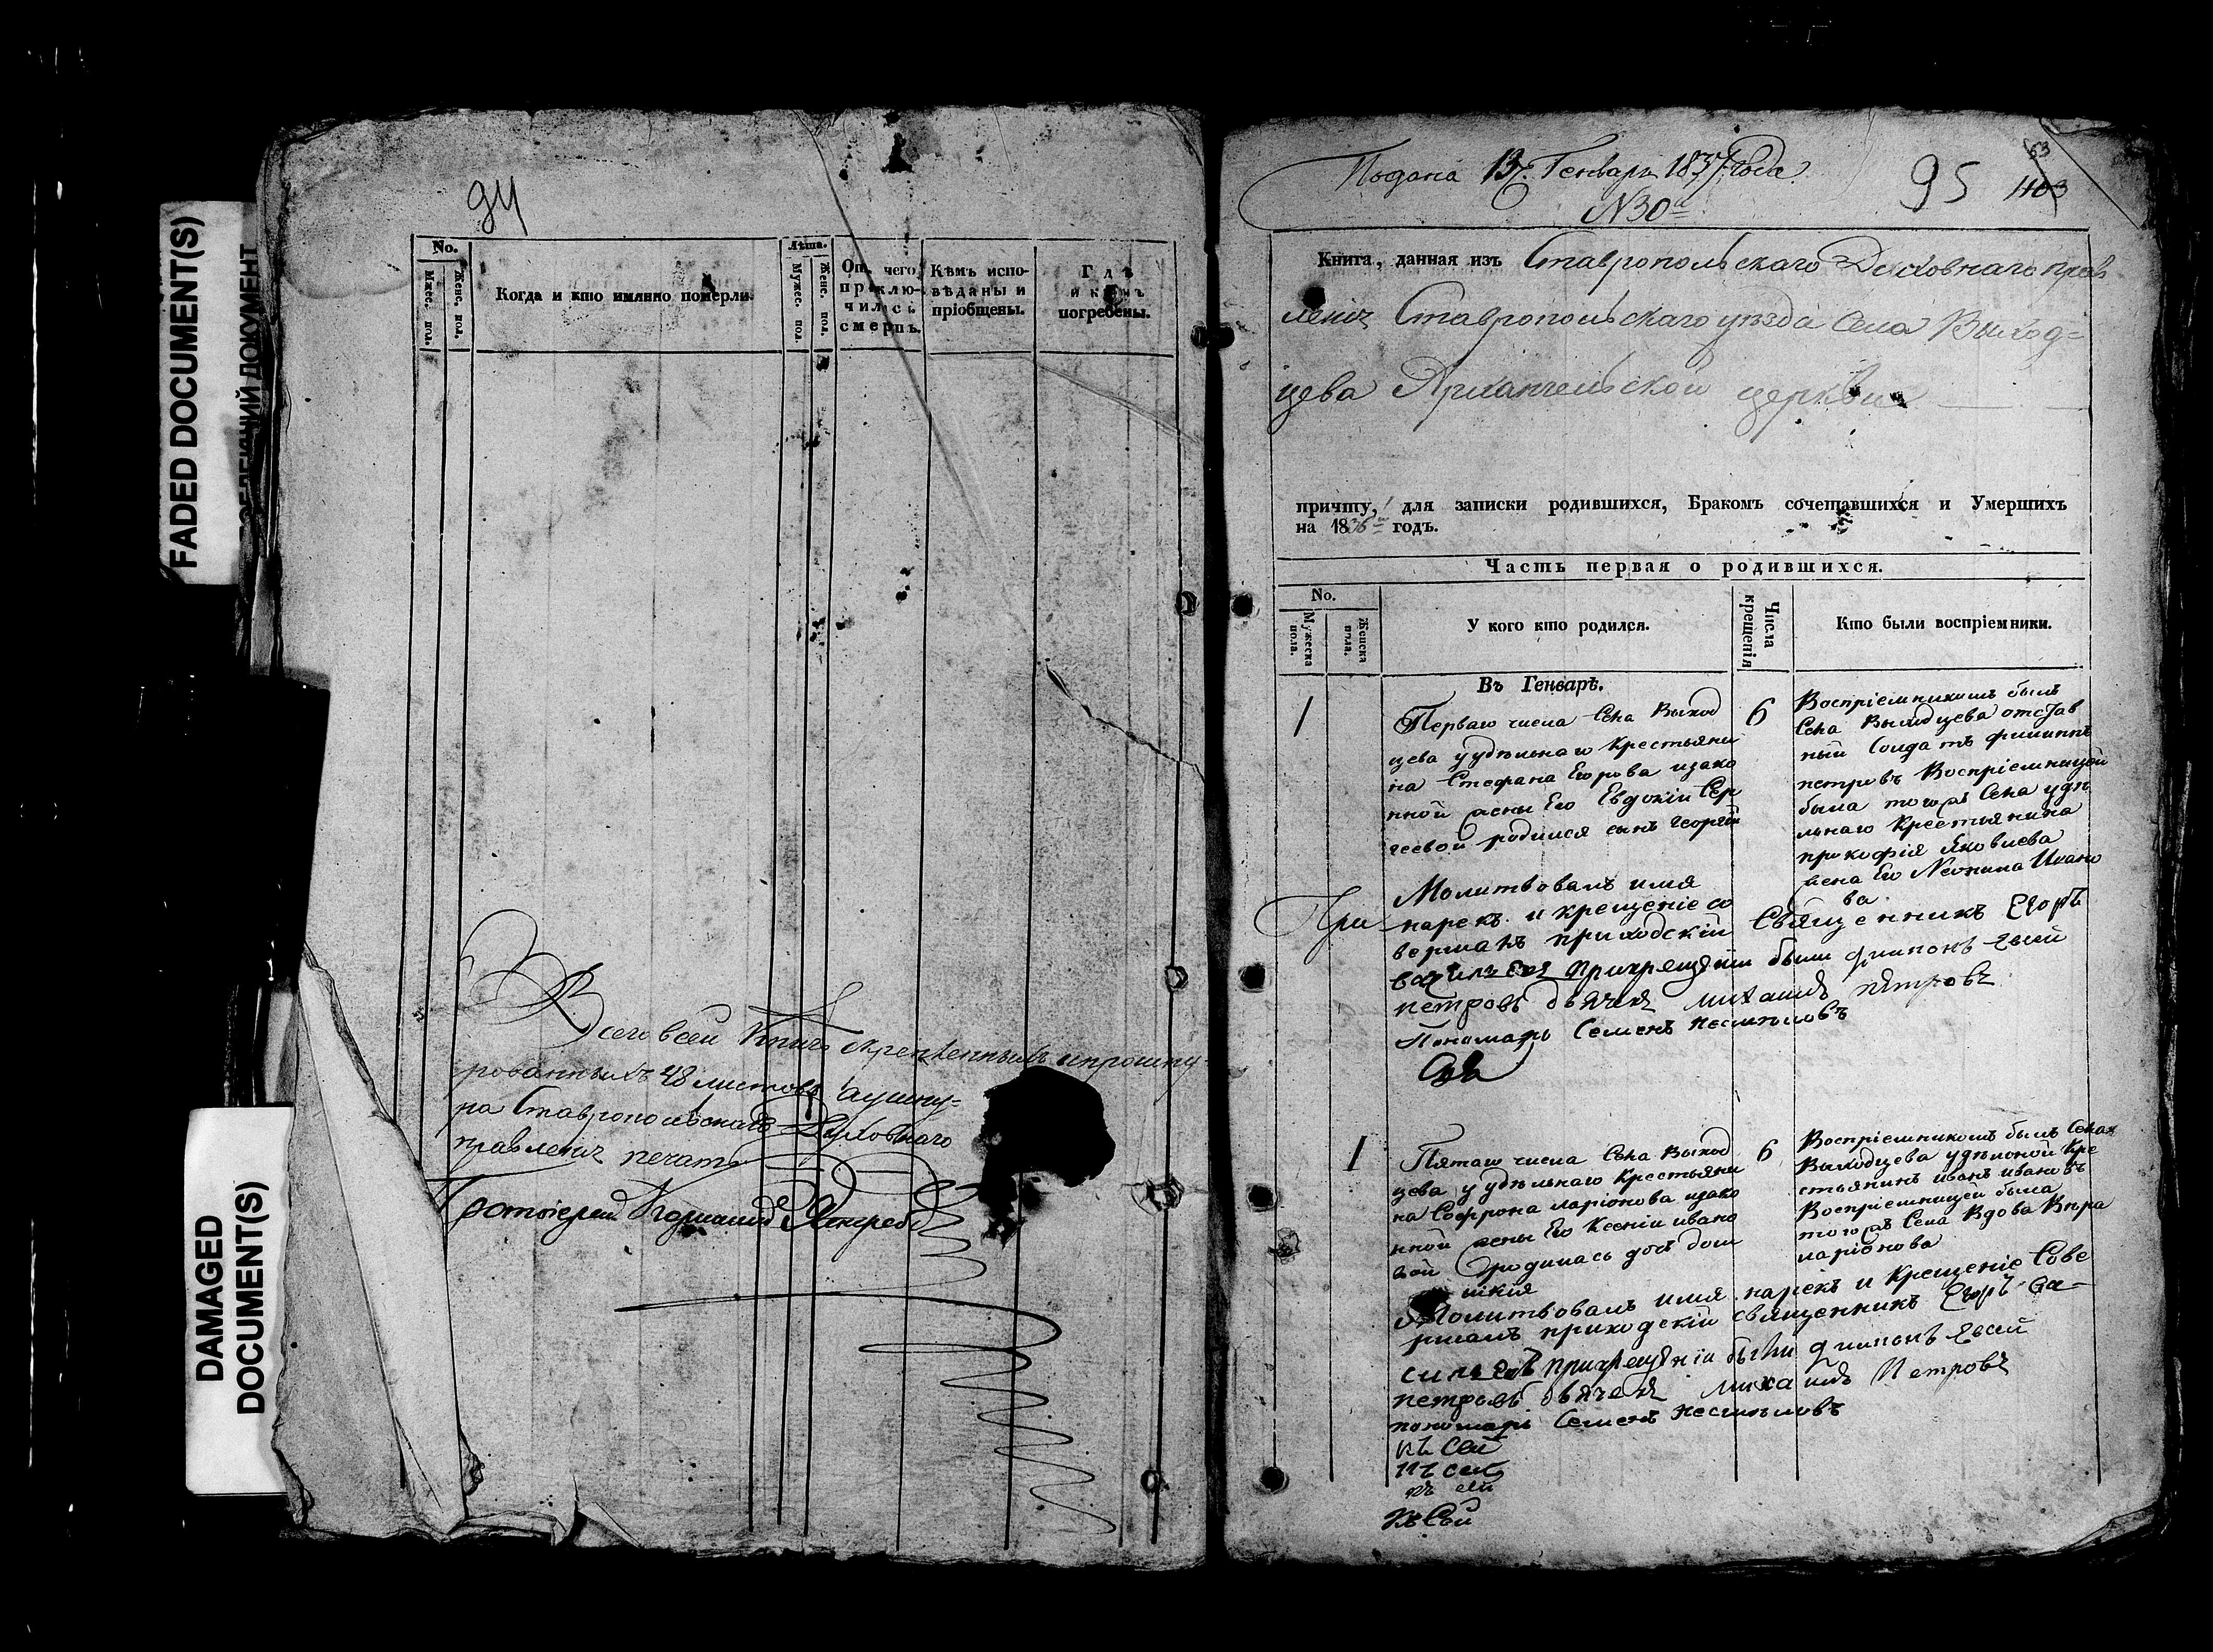 FADED DOCUMENT(S)
ДОКУМЕНТ
DAMAGED
DOCUMENT(S)
94
No.
Мужес. пол.
Женс. пол.
Когда и кто имянно померли.
Лѣта.
Мужес. пол.
Женс. пол.
Отъ чего
приклю-
чилась
смерть.
Кѣмъ испо-
вѣданы и
пріобщены.
Гдѣ
и кѣмъ
погребены.
Всего в сей Книгѣ скрепленныхъ и прошну-
рованныхъ 48 листовъ
на Ставропольскаго Духовнаго
правленія печать
Протоіерей
Подана 13. Генваря 1837 года.
N 30й
95
53
1103
Книга, данная изъ Ставропольскаго Духовнаго прав
ленія Ставропольскаго уѣзда Села Выход=
цева Архангельской церкви
причту, для записки родившихся, Бракомъ сочетавшихся и Умершихъ
на 1836й годъ.
Часть первая о родившихся.
No.
Мужеска пола.
Женска пола.
У кого кто родился.
Числа крещенія
Кто были воспріемники.
Въ Генварѣ.
1
Перваго числа Села Выход
цева удѣльнаго Крестьяни
на Стефана Егорова изако
нной жены Его Евдокіи Сер
геевой родился сынъ Георгій
6
Воспріемникомъ былъ
Села Выходцева отстав
ный Солдатъ филиппъ
петровъ Воспріемницей
была тогожъ Села удѣ
льнаго Крестьянина
прокофія Яковлева
жена Его Неонила Ивано
ва
При
Молитвовалъ имя
нарекъ и крещеніе со
вершалъ приходскій Священникъ Егоръ
васильевъ прикрещеніи были
петровъ дьячекъ михаилъ петровъ
Пономарь Семенъ несмѣловъ
1
Пятаго числа Села Выход
цева удѣльнаго Крестьяни
на Софрона ларіонова изако
нной жены Его Ксеніи ивано
вой родилась дочь дом
никія
6
Воспріемникомъ былъ Села
Выходцева удѣлной Кре
стьянинъ иванъ ивановъ
Воспріемницей была
тогожъ Села Вдова
ларіонова
Молитвовалъ имя нарекъ и Крещеніе Сове
ршалъ приходскій священникъ Егоръ Ва-
сильевъ прикрещеніи были
петровъ дьячекъ михаилъ Петровъ
пономарь Семенъ несмѣловъ
къ Сей